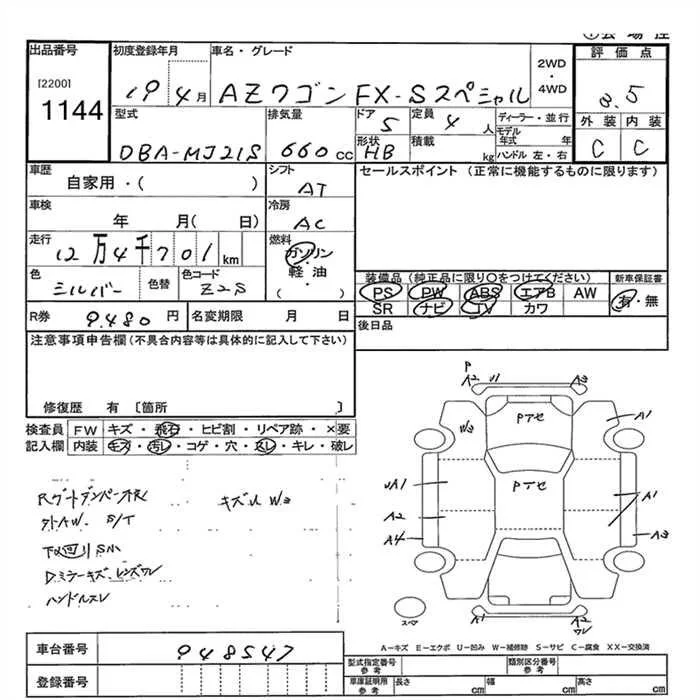 出品番号 初度登録年月 車名・グレード 評価点
[2200]
1144
19 4月 AZワゴン FX-Sスペシャル
2WD
・
4WD
3.5
外装 内装
C C
型式 排気量 ドア 定員 ディーラー・並行
DBA-MJ21S 660cc 5 4人
形状 積載 モデル年式 年
HB kg ハンドル 左・右
車歴 シフト セールスポイント (正常に機能するものに限ります)
自家用・( ) AT
車検 冷房
年 月( 日) AC
走行 燃料
12万4千701km ガソリン
軽油
・
( )
色 色替 色コード
シルバー Z2S
装備品 (純正品に限り○をつけてください) 新車保証書
PS PW ABS エアB AW 有・無
SR ナビ TV カワ
R券 9.480円 名変期限 月 日
後日品
注意事項申告欄(不具合内容等は具体的に記入して下さい)
修復歴 有 〔箇所 〕
検査員 FW キズ・飛石・ヒビ割・リペア跡・×要
記入欄 内装 キズ・汚レ・コゲ・穴・スレ・キレ・破レ
P
A2 U1 A3
W3 Pテセ A1
UA1 Pテセ A1
A2
A4 A3
スペア A1 A2
ワレ
Rゲートダンパー不良 キズ凹W3
外AW. S/T
下回りSM
Dミラーキズ.レンズワレ
ハンドルスレ
A-キズ E-エクボ U-凹み W-補修跡 S-サビ C-腐食 XX-交換済
車台番号 948547
登録番号
型式指定番号 参考 類別区分番号 参考
車庫証明用 参考 長さ cm 幅 cm 高さ cm